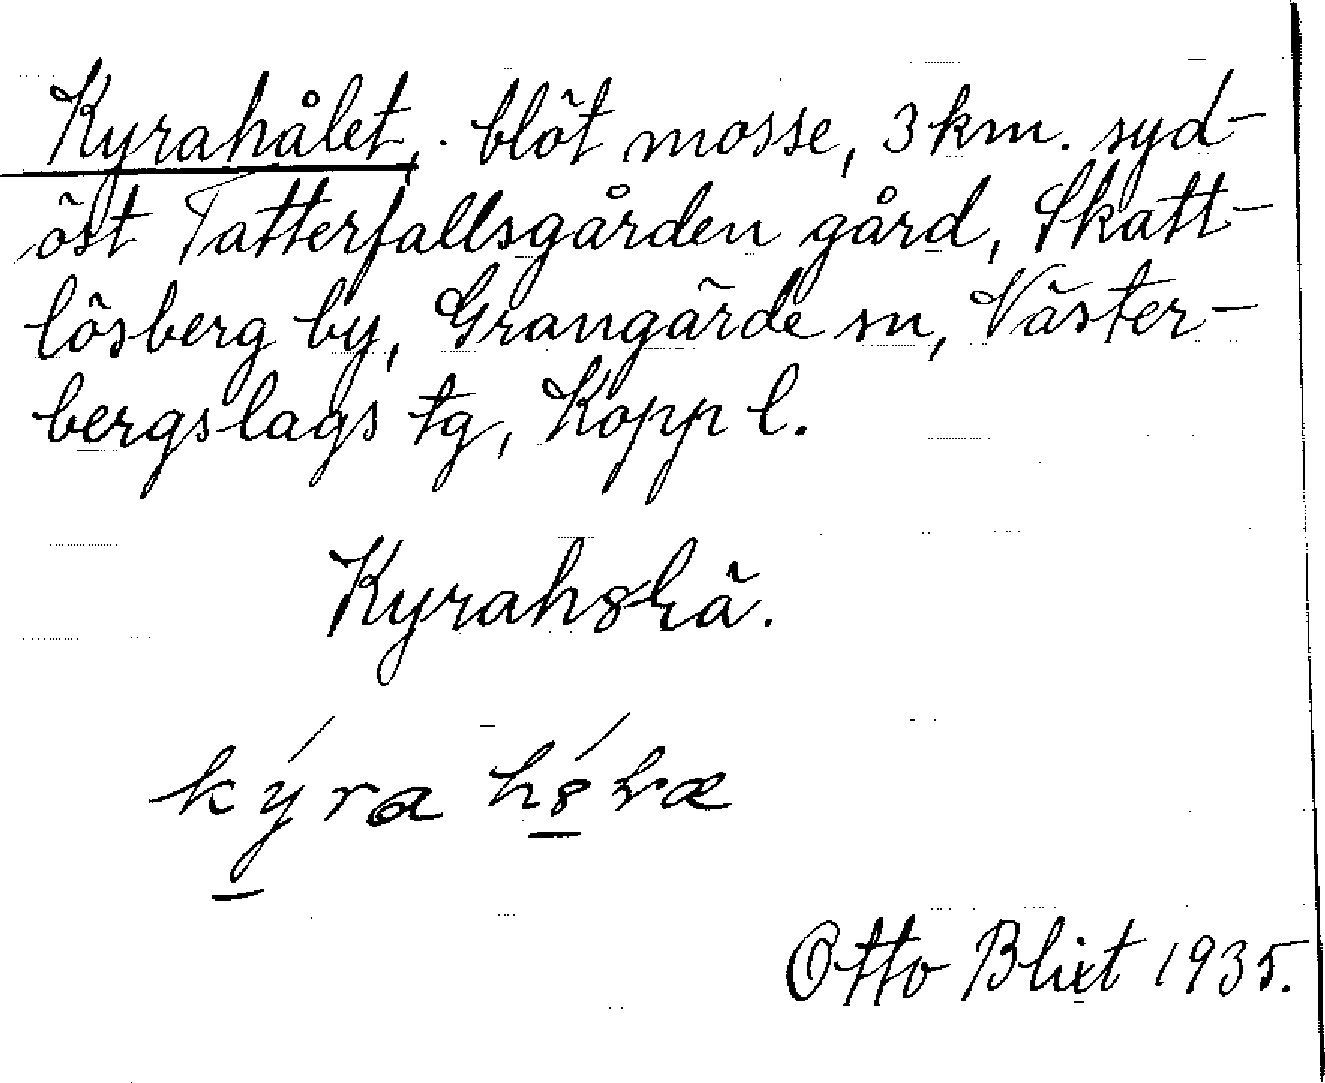 Kyrahålet, blöt mosse, 3 km. syd-
öst Tatterfallsgården gård, Skatt-
lösberg by, Grangärde sn, Väster-
bergslags tg, Kopp l.
Otto Blixt 1935.